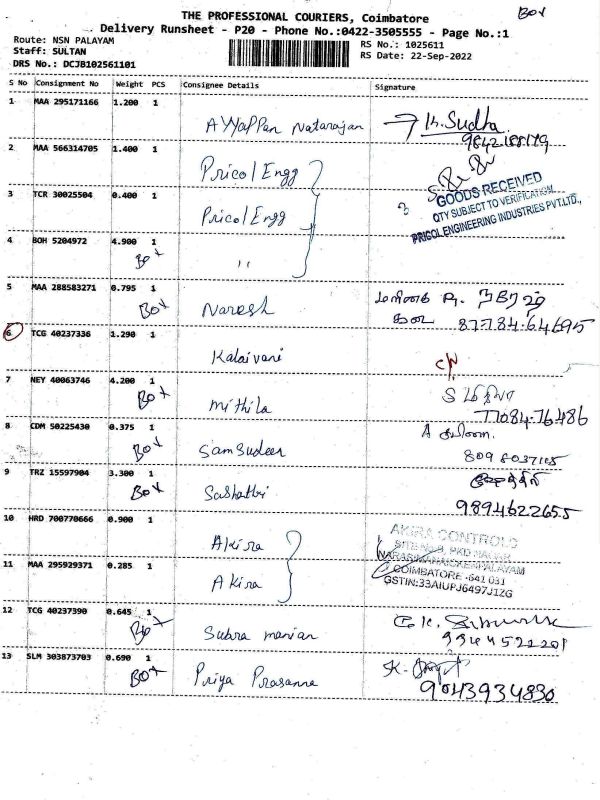 BOX
THE PROFESSIONAL COURIERS, Coimbatore
Delivery Runsheet - P20 - Phone No.:0422-3505555 - Page No.:1
Route: NSN PALAYAM
RS No.: 1025611
Staff: SULTAN
RS Date: 22-Sep-2022
DRS No.: DCJB102561101
S No Consignment No Weight PCS Consignee Details Signature
1 MAA 295171166 1.200 1
Ayyappan Natarajan K. Sudha
9842188179
2 MAA 566314705 1.400 1
Pricol Engg
3 TCR 30025504 0.400 1
GOODS RECEIVED
QTY SUBJECT TO VERIFICATION
PRICOL ENGINEERING INDUSTRIES PVT.LTD.,
3
Pricol Engg
4 BOH 5204972 4.900 1
BOX "
5 MAA 288583271 0.795 1
BOX Naresh
87784-64695
6 TCG 40237336 1.290 1
Kalaivani
7 NEY 40063746 4.200 1
BOX Mithila
77084-76486
8 CDM 50225430 0.375 1
BOX Samsudeen
9 TRZ 15597904 3.300 1
BOX
9894622655
10 HRD 700770666 0.900 1
Akira
AKIRA CONTROLS
11 MAA 295929371 0.285 1
COIMBATORE -641 031
GSTIN:33AIUPJ6497J1ZG
Akira
12 TCG 40237390 0.645 1
BOX Subra manian
13 SLM 303873703 0.690 1
BOX Priya Prasanna
9043934830